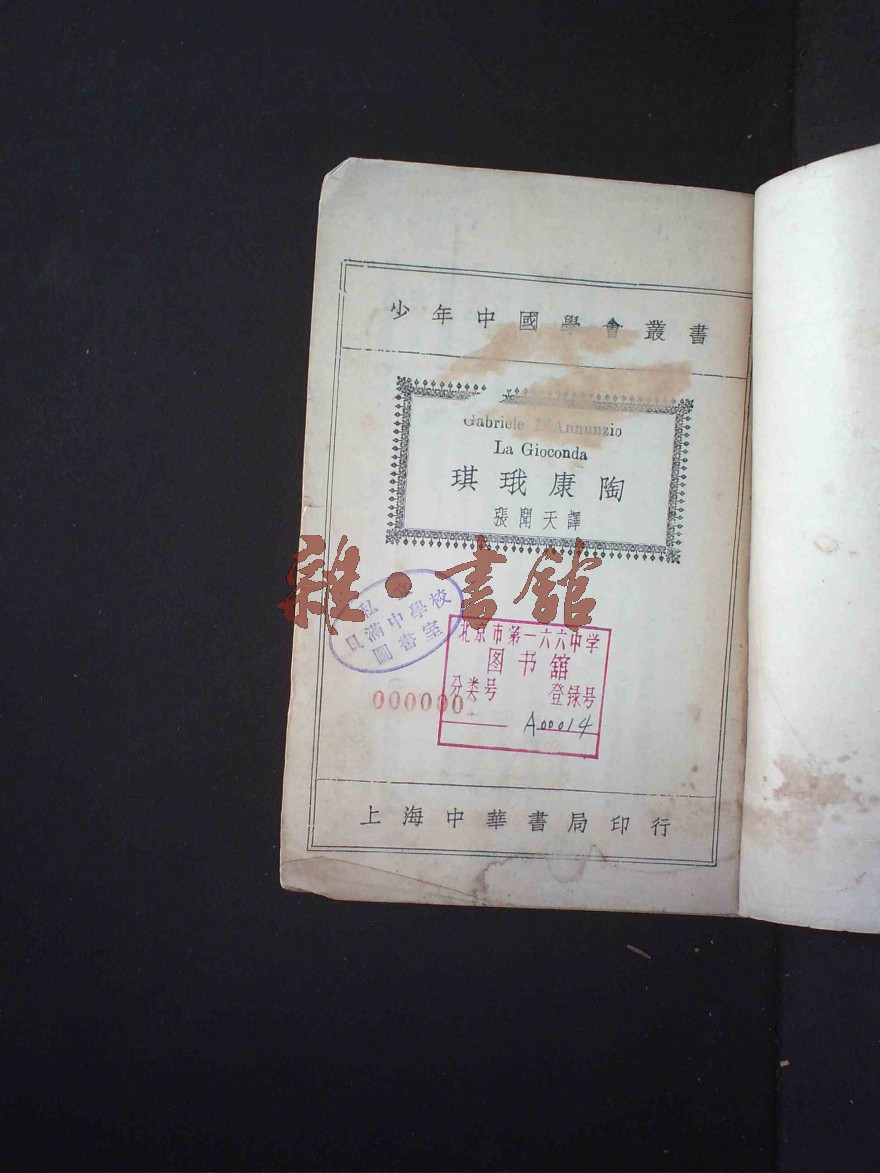 少年中國學會叢書
Gabriele D'Annunzio
La Gioconda
琪珴康陶
張聞天譯
雜·書館
私立
貝滿中學校
圖書室
北京市第一六六中学
图书舘
分类号 登録号
000000
A00014
上海中華書局印行